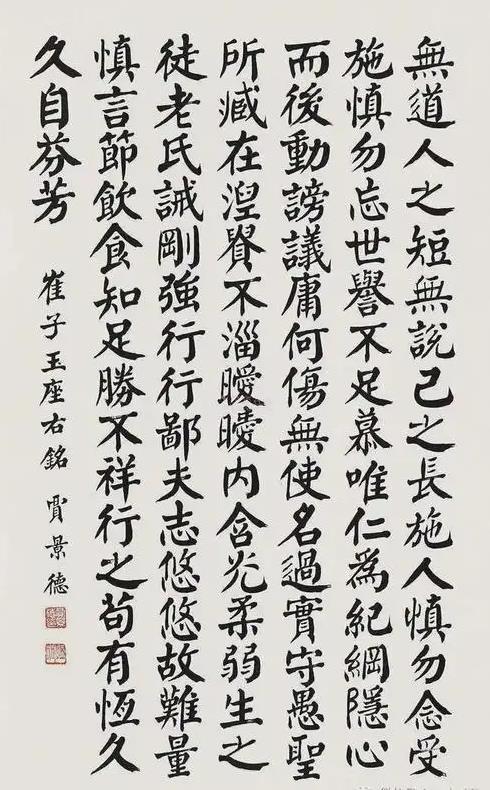 無道人之短無說己之長施人慎勿念受
施慎勿忘世譽不足慕唯仁爲紀綱隱心
而後動謗議庸何傷無使名過實守愚聖
所臧在涅貴不淄曖曖内含光柔弱生之
徒老氏誡剛強行行鄙夫志悠悠故難量
慎言節飲食知足勝不祥行之苟有恆久
久自芬芳
崔子玉座右銘 賈景德